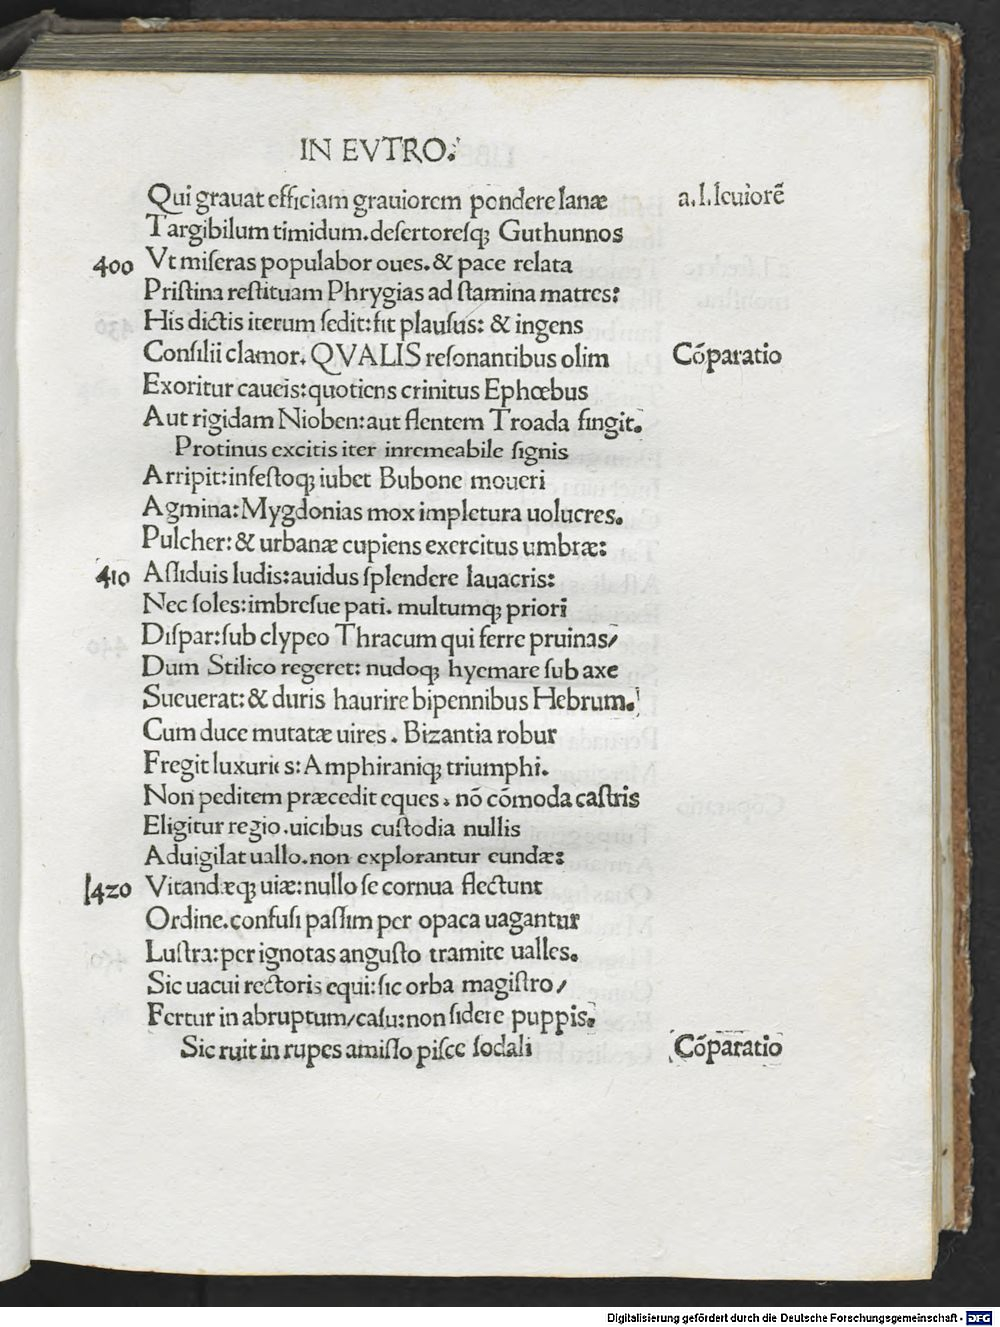 IN EVTRO.
Qui grauat efficiam grauiorem pondere lanæ a.l.leuiorē
Targibilum timidum.desertoresq; Guthunnos
400 Vt miseras populabor oues.& pace relata
Pristina restituam Phrygias ad stamina matres:
His dictis iterum sedit:fit plausus: & ingens
Consilii clamor. QVALIS resonantibus olim Cōparatio
Exoritur caueis:quotiens crinitus Ephœbus
Aut rigidam Nioben:aut flentem Troada fingit.
Protinus excitis iter inremeabile signis
Arripit:infestoq; iubet Bubone moueri
Agmina:Mygdonias mox impletura uolucres.
Pulcher:& urbanæ cupiens exercitus umbræ:
410 Assiduis ludis:auidus splendere lauacris:
Nec soles:imbresue pati. multumq; priori
Dispar:sub clypeo Thracum qui ferre pruinas/
Dum Stilico regeret: nudoq; hyemare sub axe
Sueuerat:& duris haurire bipennibus Hebrum.
Cum duce mutatæ uires. Bizantia robur
Fregit luxuries:Amphiraniq; triumphi.
Non peditem præcedit eques. nō cōmoda castris
Eligitur regio.uicibus custodia nullis
Aduigilat uallo.non explorantur eundæ:
420 Vitandæq; uiæ:nullo se cornua flectunt
Ordine.confusi passim per opaca uagantur
Lustra:per ignotas angusto tramite ualles.
Sic uacui rectoris equi:sic orba magistro/
Fertur in abruptum/casu:non sidere puppis.
Sic ruit in rupes amisso pisce sodali Cōparatio
Digitalisierung gefördert durch die Deutsche Forschungsgemeinschaft - DFG